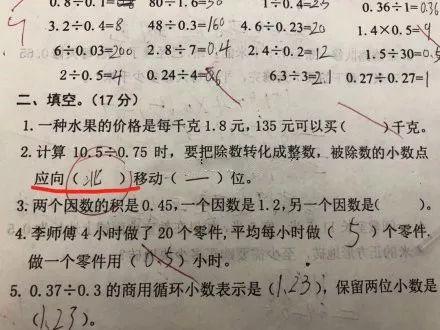 0.8÷0.1= 80÷1.6= 1÷0.4= 0.36÷1=0.36
3.2÷0.4=8 48÷0.3=160 4.6÷0.23=20 1.4×0.5=
6÷0.03=200 2.8÷7=0.4 2.4÷0.2=12 1.5÷30=0.5
2÷0.5=4 0.24÷4= 6.3÷3=2.1 0.27÷0.27=1
二、填空。(17分)
1.一种水果的价格是每千克1.8元,135元可以买( )千克。
2.计算10.5÷0.75时,要把除数转化成整数,被除数的小数点
应向(北)移动(一)位。
3.两个因数的积是0.45,一个因数是1.2,另一个因数是( )。
4.李师傅4小时做了20个零件,平均每小时做(5)个零件.
做一个零件用(0.55小时。
5.0.37÷0.3的商用循环小数表示是(1.23),保留两位小数是
(1.23)。